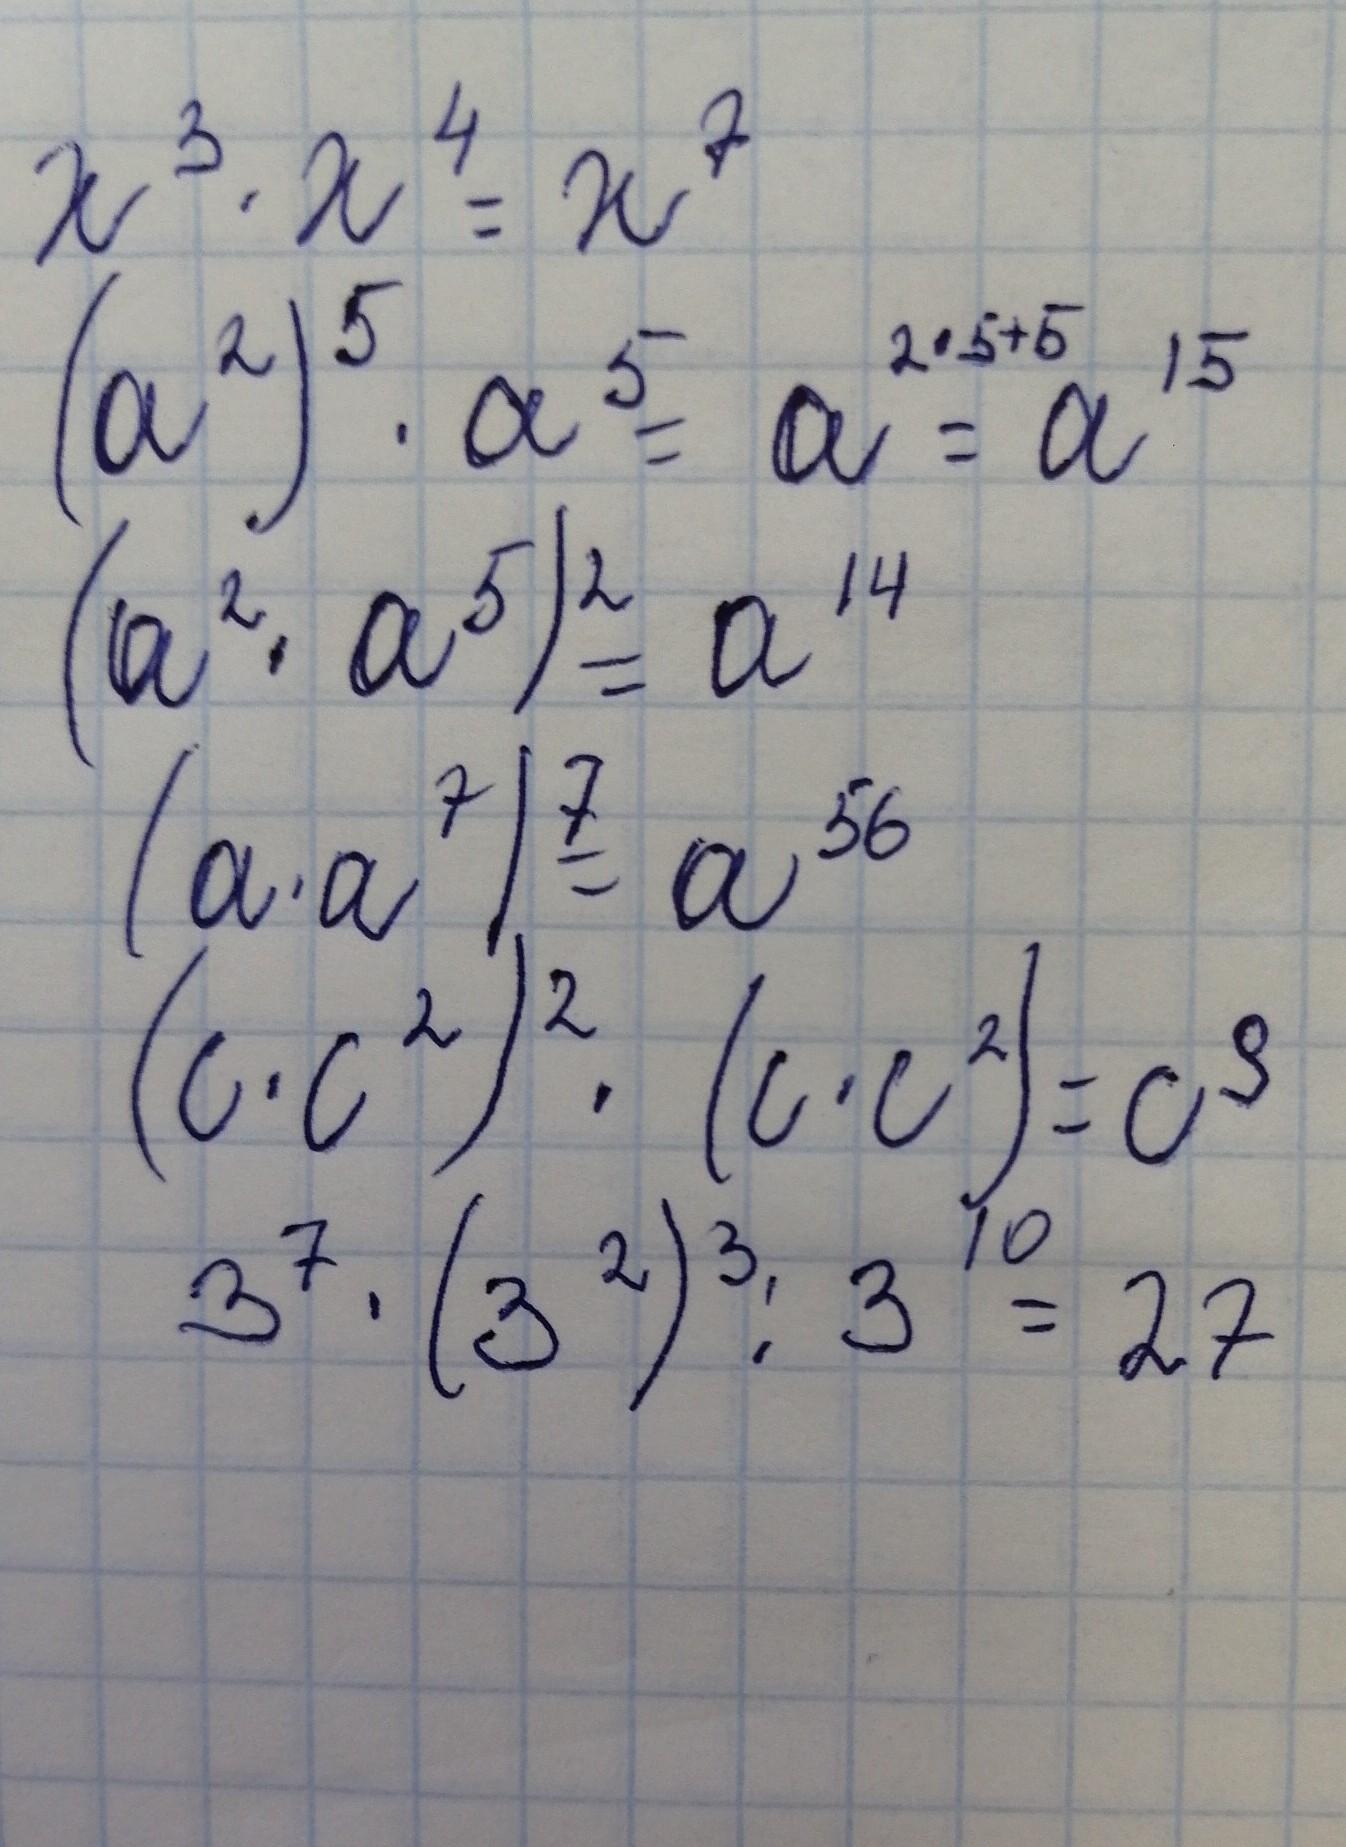 x³ · x⁴ = x⁷
(a²)⁵ · a⁵ = a²·⁵⁺⁵ = a¹⁵
(a² · a⁵)² = a¹⁴
(a · a⁷)⁷ = a⁵⁶
(c · c²)² · (c · c²) = c⁹
3⁷ · (3²)³ : 3¹⁰ = 27